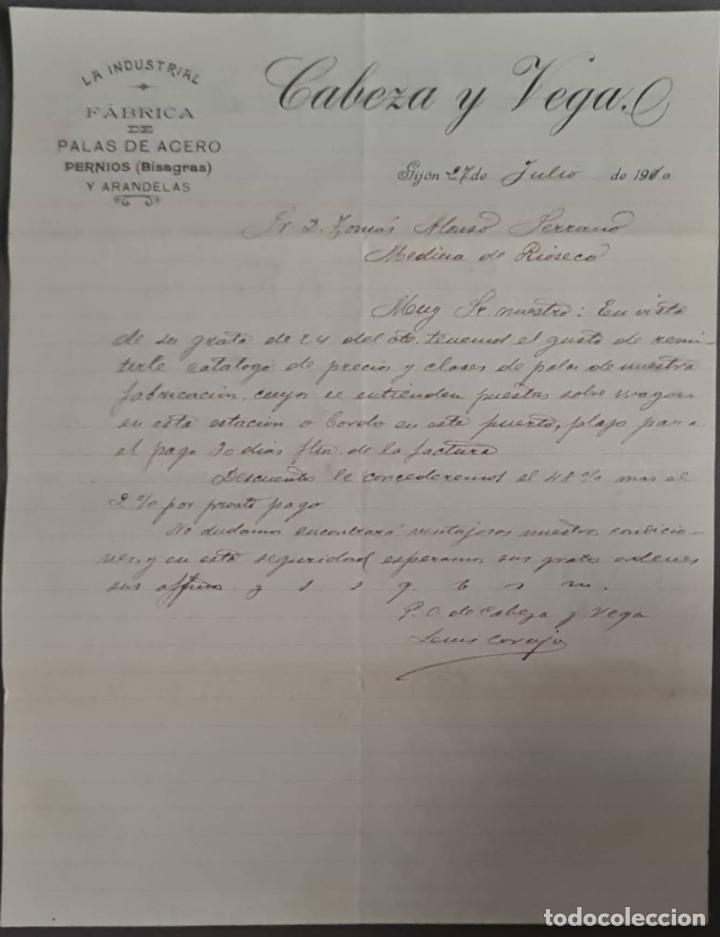 LA INDUSTRIAL
FÁBRICA
DE
PALAS DE ACERO
PERNIOS (Bisagras)
Y ARANDELAS
Cabeza y Vega.
Gijón 27 de Julio de 1910
Sr. D. Tomás Alonso Serrano
Medina de Rioseco
Muy Sr. nuestro: En vista
de su grata de 24 del cte. tenemos el gusto de remi-
tirle catalogo de precios y clases de palas de nuestra
fabricación, cuyos se entienden puestas sobre wagon
en esta estación o bordo en este puerto, plazo para
el pago 30 dias fha. de la factura
Descuentos le concederemos el 48% mas el
2% por pronto pago
No dudamos encontrará ventajosas nuestras condicio-
nes, y en esta seguridad esperamos sus gratas ordenes
sus affmos y s s q b s m.
P. O. de Cabeza y Vega
Luis
todocoleccion